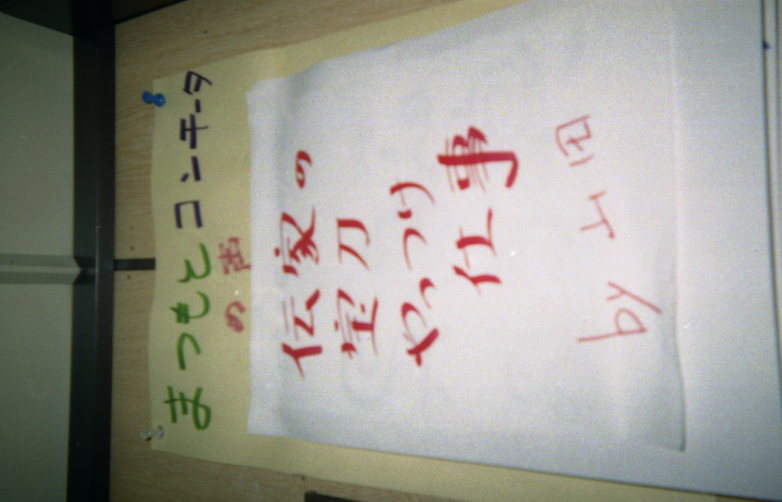 まつもとコンチータ
の
伝家の
宝刀
やっつけ
仕事
by 上田